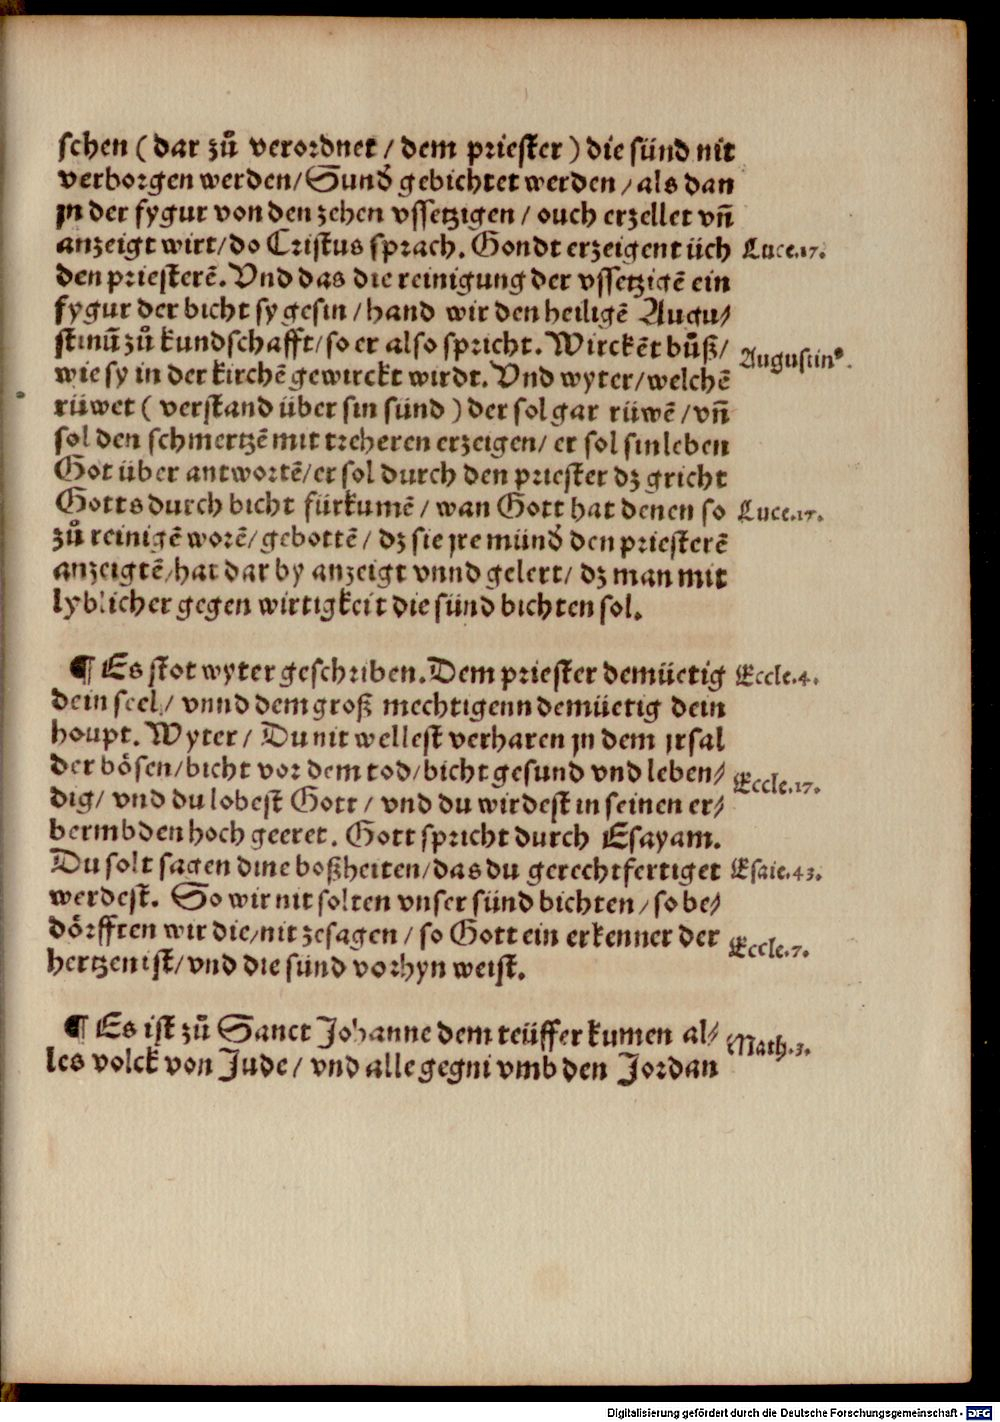 schen (dar zů verordnet / dem priester) die sünd nit
verborgen werden/ Sund gebichtet werden / als dan
jn der fygur von den zehen vssetzigen / ouch erzellet vñ
anzeigt wirt/do Cristus sprach. Gondt erzeigent üch
Luce.17.
den priesterē. Vnd das die reinigung der vssetzigē ein
fygur der bicht sy gesin / hand wir den heiligē Augu/
stinū zů kundschafft/so er also spricht. Wirckēt bůß/
Augustin⁹.
wie sy in der kirchē gewirckt wirdt. Vnd wyter/welchē
rüwet ( verstand über sin sünd ) der sol gar rüwē /vñ
sol den schmertzē mit treheren erzeigen/ er sol sin leben
Got über antwortē/er sol durch den priester dz gricht
Gotts durch bicht fürkumē / wan Gott hat denen so
Luce.17.
zů reinigē worē/gebottē / dz sie jre münd den priesterē
anzeigtē/hat dar by anzeigt vnnd gelert/ dz man mit
lyblicher gegen wirtigkeit die sünd bichten sol.
¶ Es stot wyter geschriben. Dem priester demüetig
Eccle.4.
dein seel/ vnnd dem groß mechtigenn demüetig dein
houpt. Wyter / Du nit wellest verharen jn dem jrsal
der bösen/bicht vor dem tod/bicht gesund vnd leben/
Eccle.17.
dig/ vnd du lobest Gott / vnd du wirdest in seinen er/
bermbden hoch geeret. Gott spricht durch Esayam.
Du solt sagen dine boßheiten/das du gerechtfertiget
Esaie.43.
werdest. So wir nit solten vnser sünd bichten / so be/
dörfften wir die/nit zesagen / so Gott ein erkenner der
Eccle.7.
hertzen ist/vnd die sünd vorhyn weist.
¶ Es ist zů Sanct Johanne dem teüffer kumen al/
Math.3.
les volck von Jude / vnd alle gegni vmb den Jordan
Digitalisierung gefördert durch die Deutsche Forschungsgemeinschaft - DFG